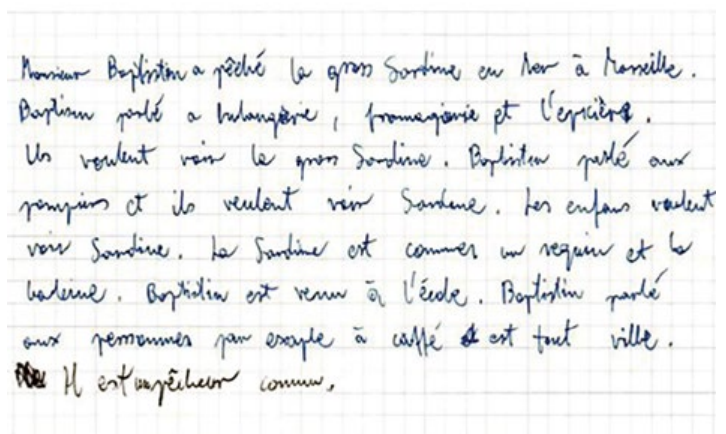 Monsieur Baptistin a pêché la gross Sardine en Mer à Marseille.
Baptisin parlé a bulangerie, fromagerie et l'epicière.
Us voulent voir la gross Sardine. Baptistin parlé aux
pompiers et ils veulent voir Sardine. Les enfans voulent
voir Sardine. La Sardine est commes un requin et la
baleine. Baptistin est venu à l'école. Baptistin parlé
aux personnes par exaple à caffé est tout ville.
Il est un pêcheur connu.